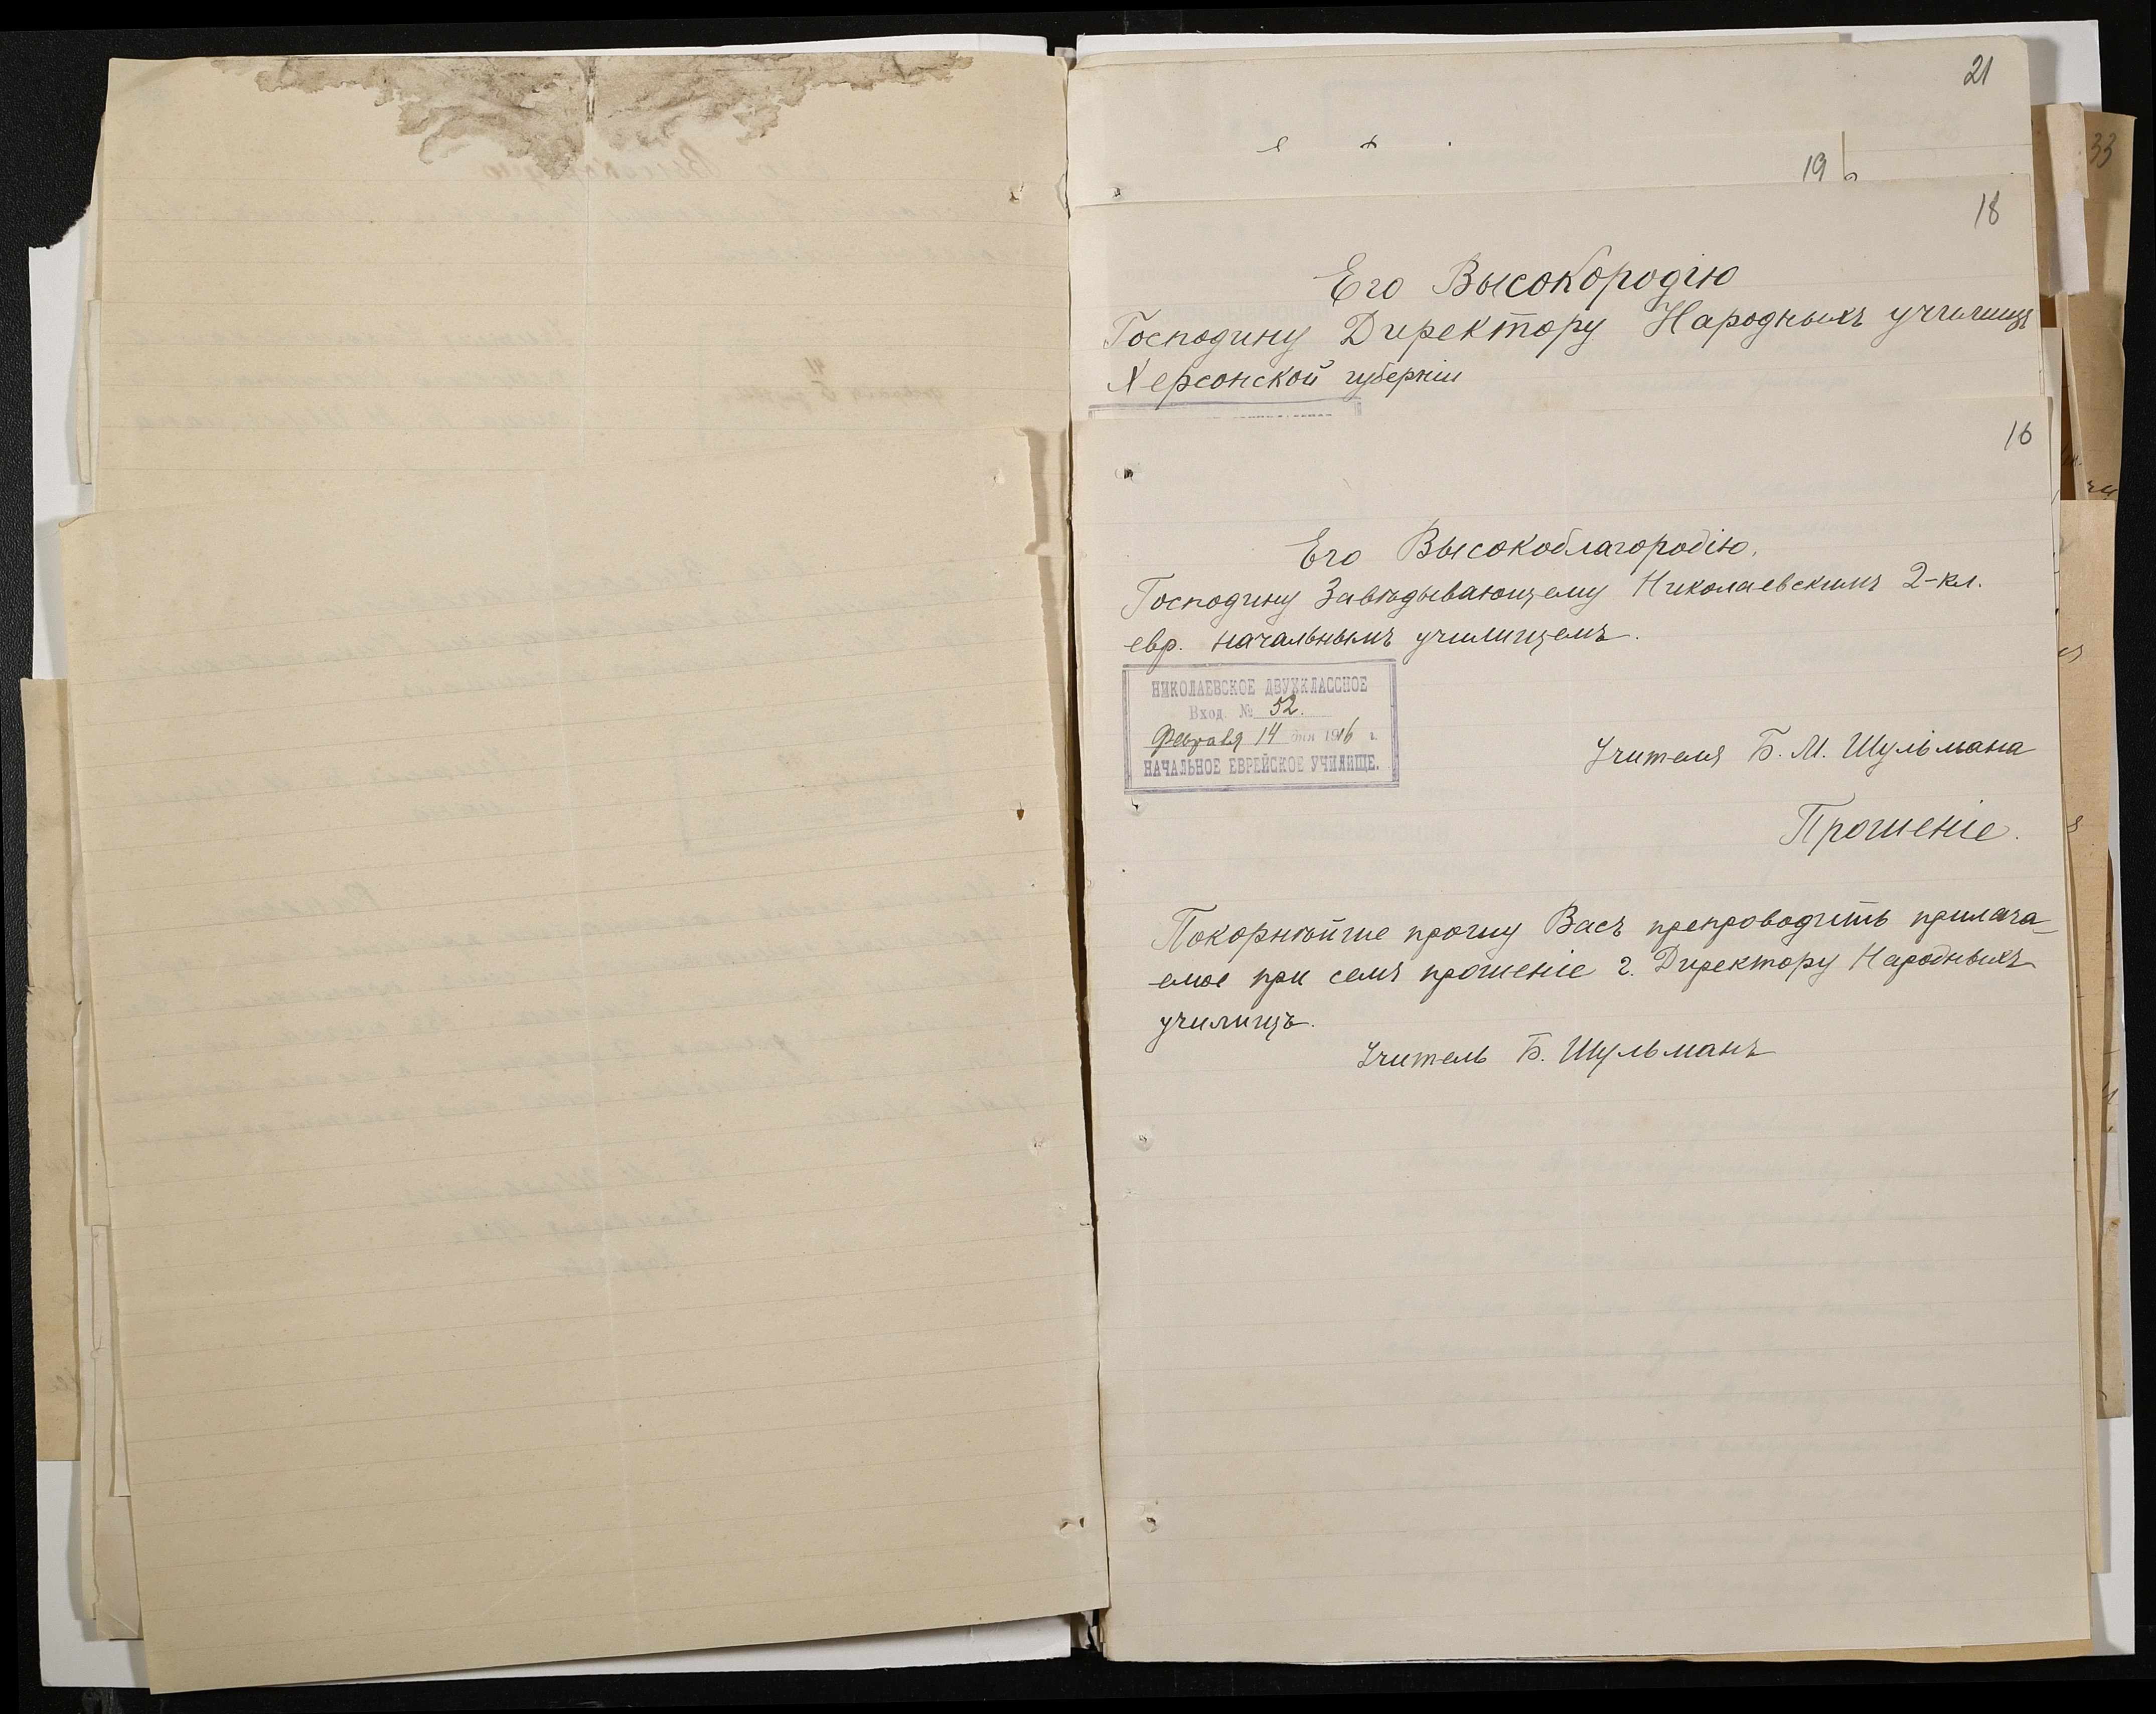 21
33
19
18
Его Высокородію
Господину Директору Народныхъ училищъ
Херсонской губерніи
16
Его Высокоблагородію.
Господину Завѣдывающему Николаевскимъ 2-кл.
евр. начальнымъ училищемъ.
НИКОЛАЕВСКОЕ ДВУХКЛАССНОЕ
Вход. № 52.
Февраля 14 дня 1916 г.
НАЧАЛЬНОЕ ЕВРЕЙСКОЕ УЧИЛИЩЕ.
Учителя Б. М. Шульмана
Прошеніе.
Покорнѣйше прошу Васъ препроводить прилага-
емое при семъ прошеніе г. Директору Народныхъ
училищъ.
Учитель Б. Шульманъ